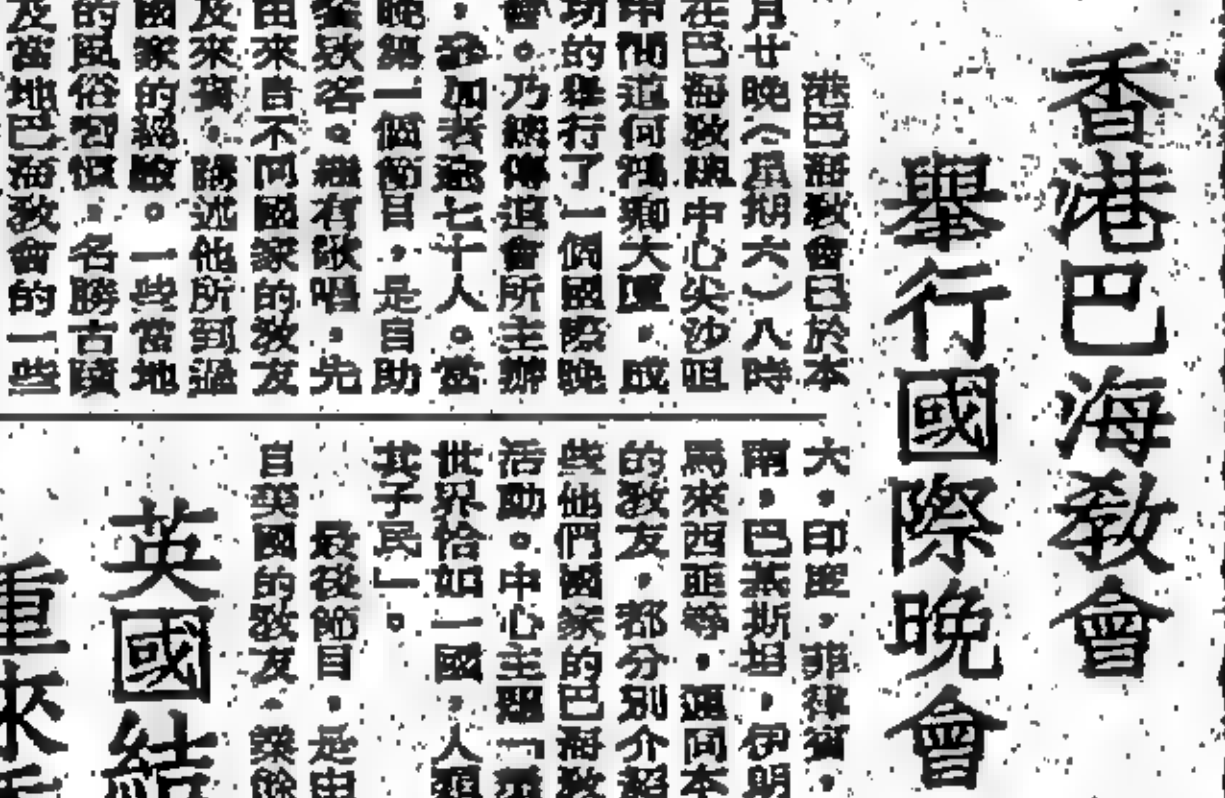 香港巴海教會
舉行國際晚會
港巴海教會已於本
月廿晚（星期六）八時
在巴海教中心尖沙咀
甲間道何鴻卿大廈，成
功的舉行了一個國際晚
會。乃總傳道會所主辦
，參加者逾七十人。當
晚第一個節目，是自助
餐。繼有歌唱，先
由來自不同國家的教友
及來賓，講述他所到過
國家的經驗。一些當地
的風俗習慣，名勝古蹟
及當地巴海教會的一些
大，印度，菲律賓，
巴基斯坦，伊朗
馬來西亞等，連同本
的教友，都分別介紹
些他們國家的巴海教
活動。中心主題「
世界恰如一國，人類
其子民」。
最後節目，是由
自英國的教友
英國結
重來